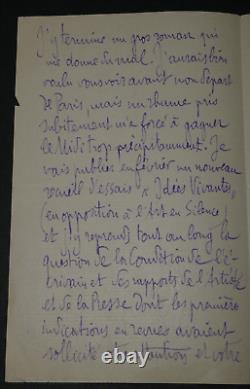 J'y termine un gros roman qui
me donne du mal. J'aurais bien
voulu vous voir avant mon départ
de Paris, mais un rhume pris
subitement m'a forcé à gagner
le Midi trop précipitamment. Je
vais publier en février un nouveau
recueil d'essais "Idées Vivantes,
(en opposition à l'Art en Silence)
et j'y reprends tout au long la
question de la Condition de l'é-
crivain et des rapports de l'Artiste
et de la Presse dont les premières
indications en revues avaient
sollicité attention et votre